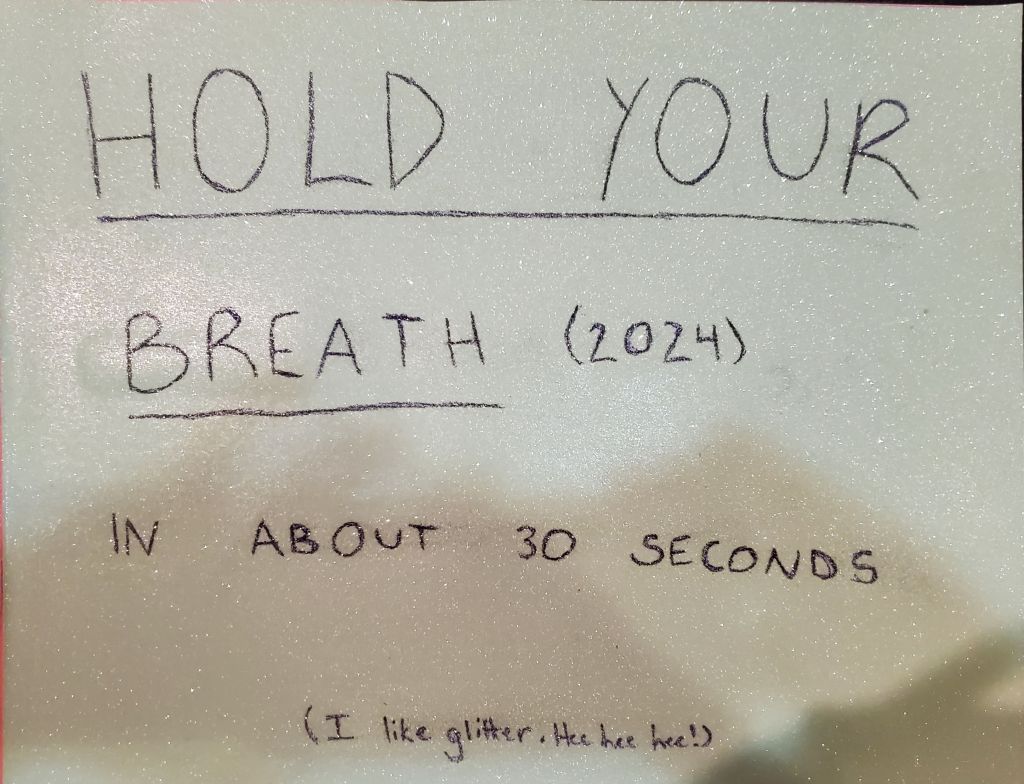 HOLD YOUR
BREATH (2024)
IN ABOUT 30 SECONDS
(I like glitter. Hee hee hee!)